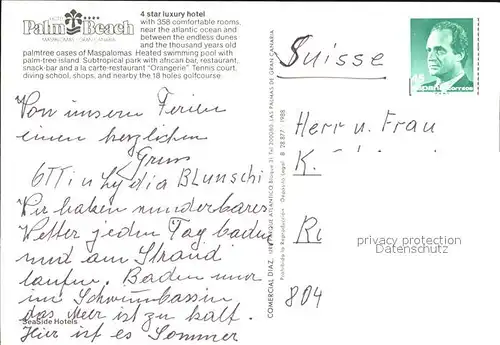 Palm Beach
MASPALOMAS - GRAN CANARIA
4 star luxury hotel
with 358 comfortable rooms,
near the atlantic ocean and
between the endless dunes
and the thousand years old
palmtree oases of Maspalomas. Heated swimming pool with
palm-tree island. Subtropical park with african bar, restaurant,
snack-bar and a la carte-restaurant "Orangerie" Tennis court,
diving school, shops, and nearby the 18 holes golfcourse.
Von unsern Ferien
einen herzlichen
Gruss
Otti u Lydia Blunschi
Wir haben wunderbares
Wetter jeden Tag baden
und am Strand
laufen. Baden nur
im Schwimmbassin
das Meer ist zu kalt.
Hier ist es Sommer
SeaSide Hotels
COMERCIAL DIAZ
Suisse
España correos
Herr u. Frau
K.
R
804
privacy protection
Datenschutz